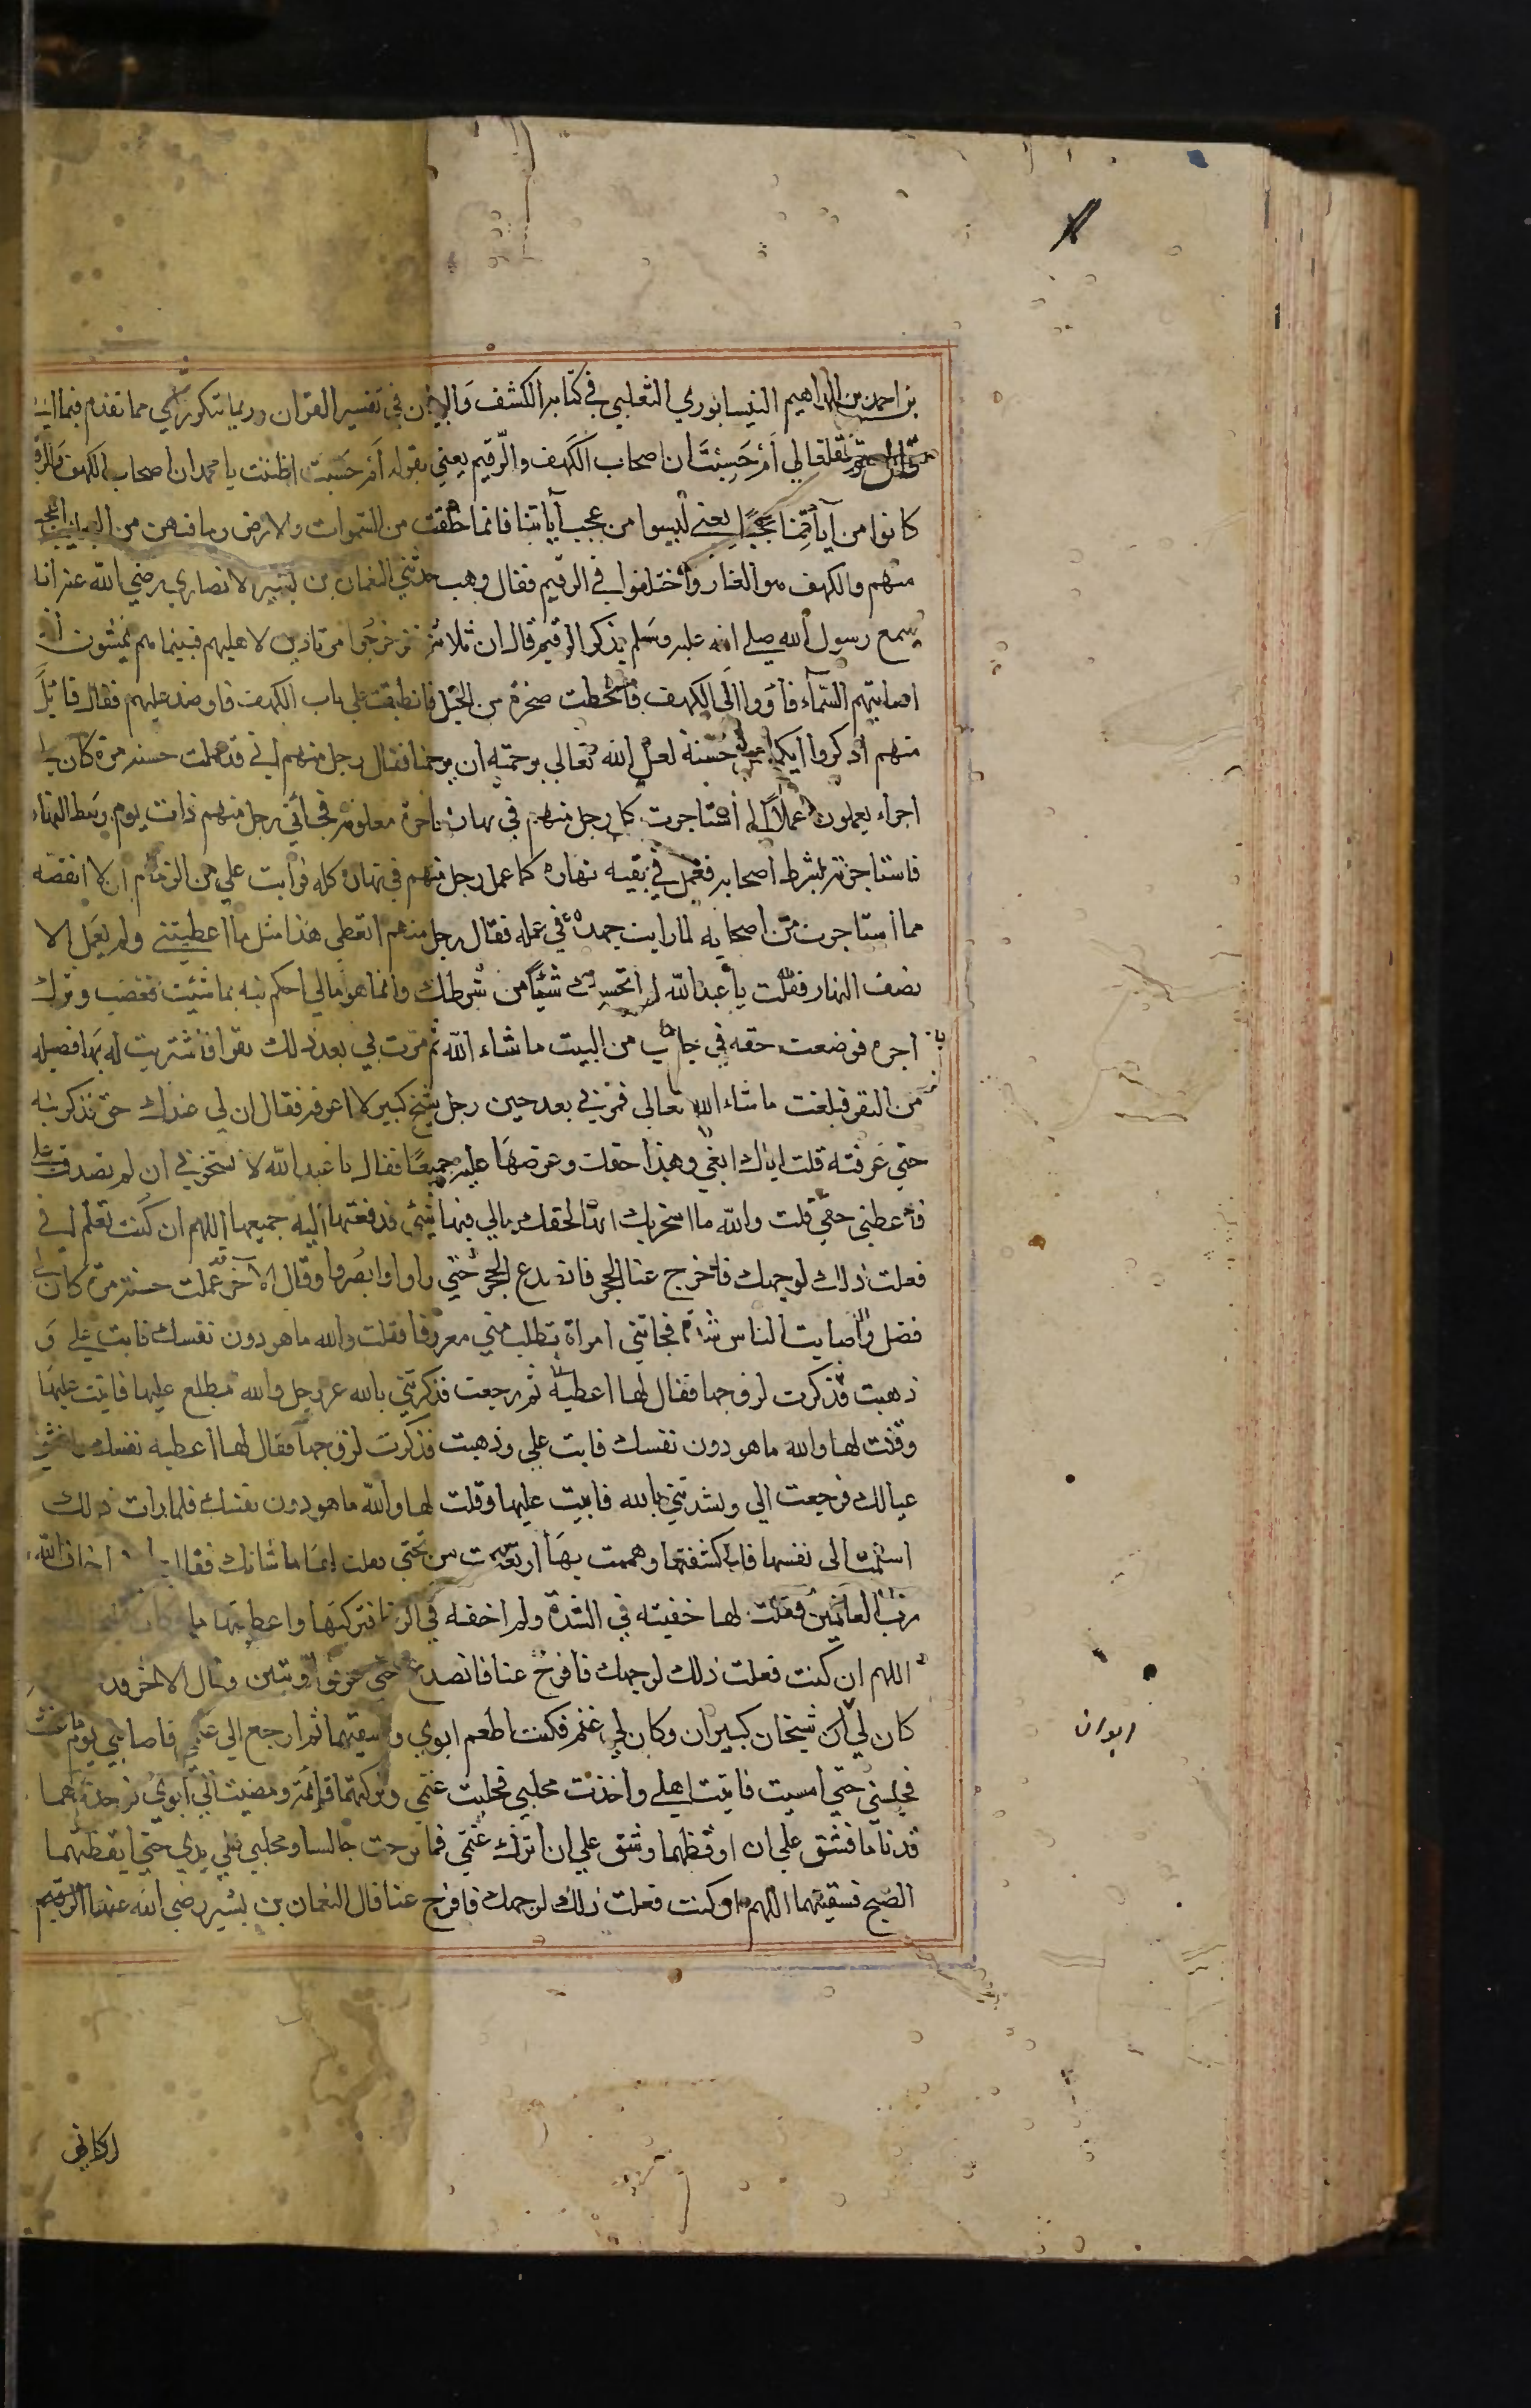 بن احمد بن ابراهيم النيسابوري الثعلبي في كتابه الكشف والبيان في تفسير القران وربما تتكرر مما تقدم
تعالي أم حسبت ان اصحاب الكهف والرقيم يعني بقوله أم حسبت اظننت يا محمد ان اصحاب الكهف والرقيم
كانوا من آياتنا عجبًا يعني ليسوا من عجب آياتنا فانما خلقت من السموات والارض وما فيهن من العجايب اعجب
منهم والكهف هو الغار واختلفوا في الرقيم فقال وهب حدثني النعمان بن بشير الانصاري رضي الله عنه انه
سمع رسول الله صلي الله عليه وسلم يذكر الرقيم قال ان ثلاثة نفر خرجوا مرتادين لاهليهم فبينما هم يمشون اذ
اصابتهم السمآء فأووا الي الكهف فانحطت صخرة من الجبل فانطبقت علي باب الكهف فاوصد عليهم فقال قائل
منهم اذكروا ايكم عمل حسنة لعل الله تعالي برحمته ان يرحمنا فقال رجل منهم اني قد عملت حسنة مرة كان لي
اجراء يعملون اعمالاً لي استاجرت كل رجل منهم في نهاره باجرة معلومة فجائني رجل منهم ذات يوم وسط النهار
فاستاجرته بشرط اصحابه فعمل في بقيه نهاره كما عمل رجل منهم في نهاره كله فرايت علي من الزمام ان لا انقصه
مما استاجرت من اصحابه لما رايت جهده في عمله فقال رجل منهم اتعطي هذا مثل ما اعطيتني ولم يعمل الا
نصف النهار فقلت يا عبد الله لم ابخسك شيًا من شرطك وانما هو مالي احكم فيه بما شيت فغضب وترك
اجره فوضعت حقه في جانب من البيت ما شاء الله ثم مرت بي بعد ذلك بقر فاشتريت له بها فصيله
من البقر فبلغت ما شاء الله تعالي فمر بي بعد حين رجل شيخ كبير لا اعرفه فقال ان لي عندك حق فذكر نيه
حتي عرفته قلت اياك ابغي وهذا حقك وعرضها عليه جميعًا فقال يا عبد الله لا تسخر بي ان لم تصدق علي
فأعطني حقي قلت والله ما اسخر بك انها لحقك مالي فيها شي فدفعتها اليه جميعها اللهم ان كنت تعلم اني
فعلت ذلك لوجهك فافرج عنا الحجر فانصدع الحجر حتي راوا وابصروا وقال الآخر قد عملت حسنة مرة كان لي
فضل واصابت الناس شدة فجاتني امراة تطلب مني معروفا فقلت والله ما هو دون نفسك فابت علي و
ذهبت فذكرت لزوجها فقال لها اعطيه ثم رجعت فذكرتني بالله عز وجل والله مطلع عليها فابيت عليها
وقلت لها والله ما هو دون نفسك فابت علي وذهبت فذكرت لزوجها فقال لها اعطيه نفسك
عيالك فرجعت الي ونشدتني بالله فابيت عليها وقلت لها والله ما هو دون نفسك فلما رات ذلك
اسلمت الي نفسها فلما كشفتها وهممت بها ارتعدت من تحتي فقلت لها ما شانك فقالت اخاف الله
رب العالمين فقلت لها خفيته في الشدة ولم اخفه في الرخا فتركتها واعطيتها
اللهم ان كنت فعلت ذلك لوجهك فافرج عنا فانصدع حتي وقال الاخر قد
كان لي ابوان شيخان كبيران وكان لي غنم فكنت اطعم ابوي واسقيهما ثم ارجع الي غنمي فاصابني يوم غيث
فحبسني حتي امسيت فاتيت اهلي واخذت محلبي فحلبت غنمي وتركتها قائمة ومضيت الي ابوي فوجدتهما
قد ناما فشق علي ان اوقظهما وشق علي ان اترك غنمي فما برحت جالسا ومحلبي علي يدي حتي ايقظهما
الصبح فسقيتهما اللهم ان كنت فعلت ذلك لوجهك فافرج عنا قال النعمان بن بشير رضي الله عنهما
ابوان
لكاني